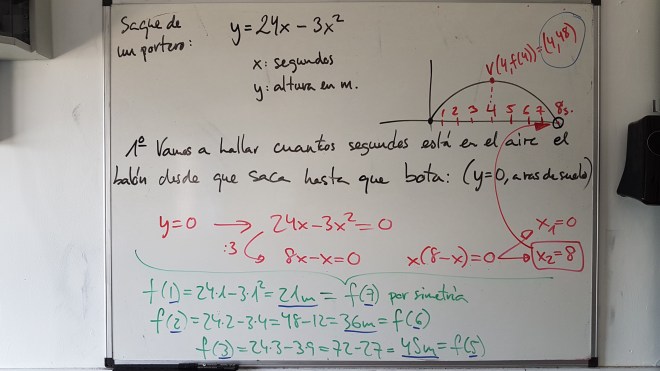 Saque de
un portero:
y = 24x - 3x²
x: segundos
y: altura en m.
V(4, f(4)) = (4, 48)
1 2 3 4 5 6 7 8s.
1º Vamos a hallar cuantos segundos está en el aire el
balón desde que saca hasta que bota: (y=0, a ras de suelo)
y=0 → 24x-3x²=0 x₁=0
:3 8x-x=0 x(8-x)=0 x₂=8
f(1)=24·1-3·1²=21m = f(7) por simetría
f(2)=24·2-3·4=48-12=36m=f(6)
f(3)=24·3-3·9=72-27=45m=f(5)